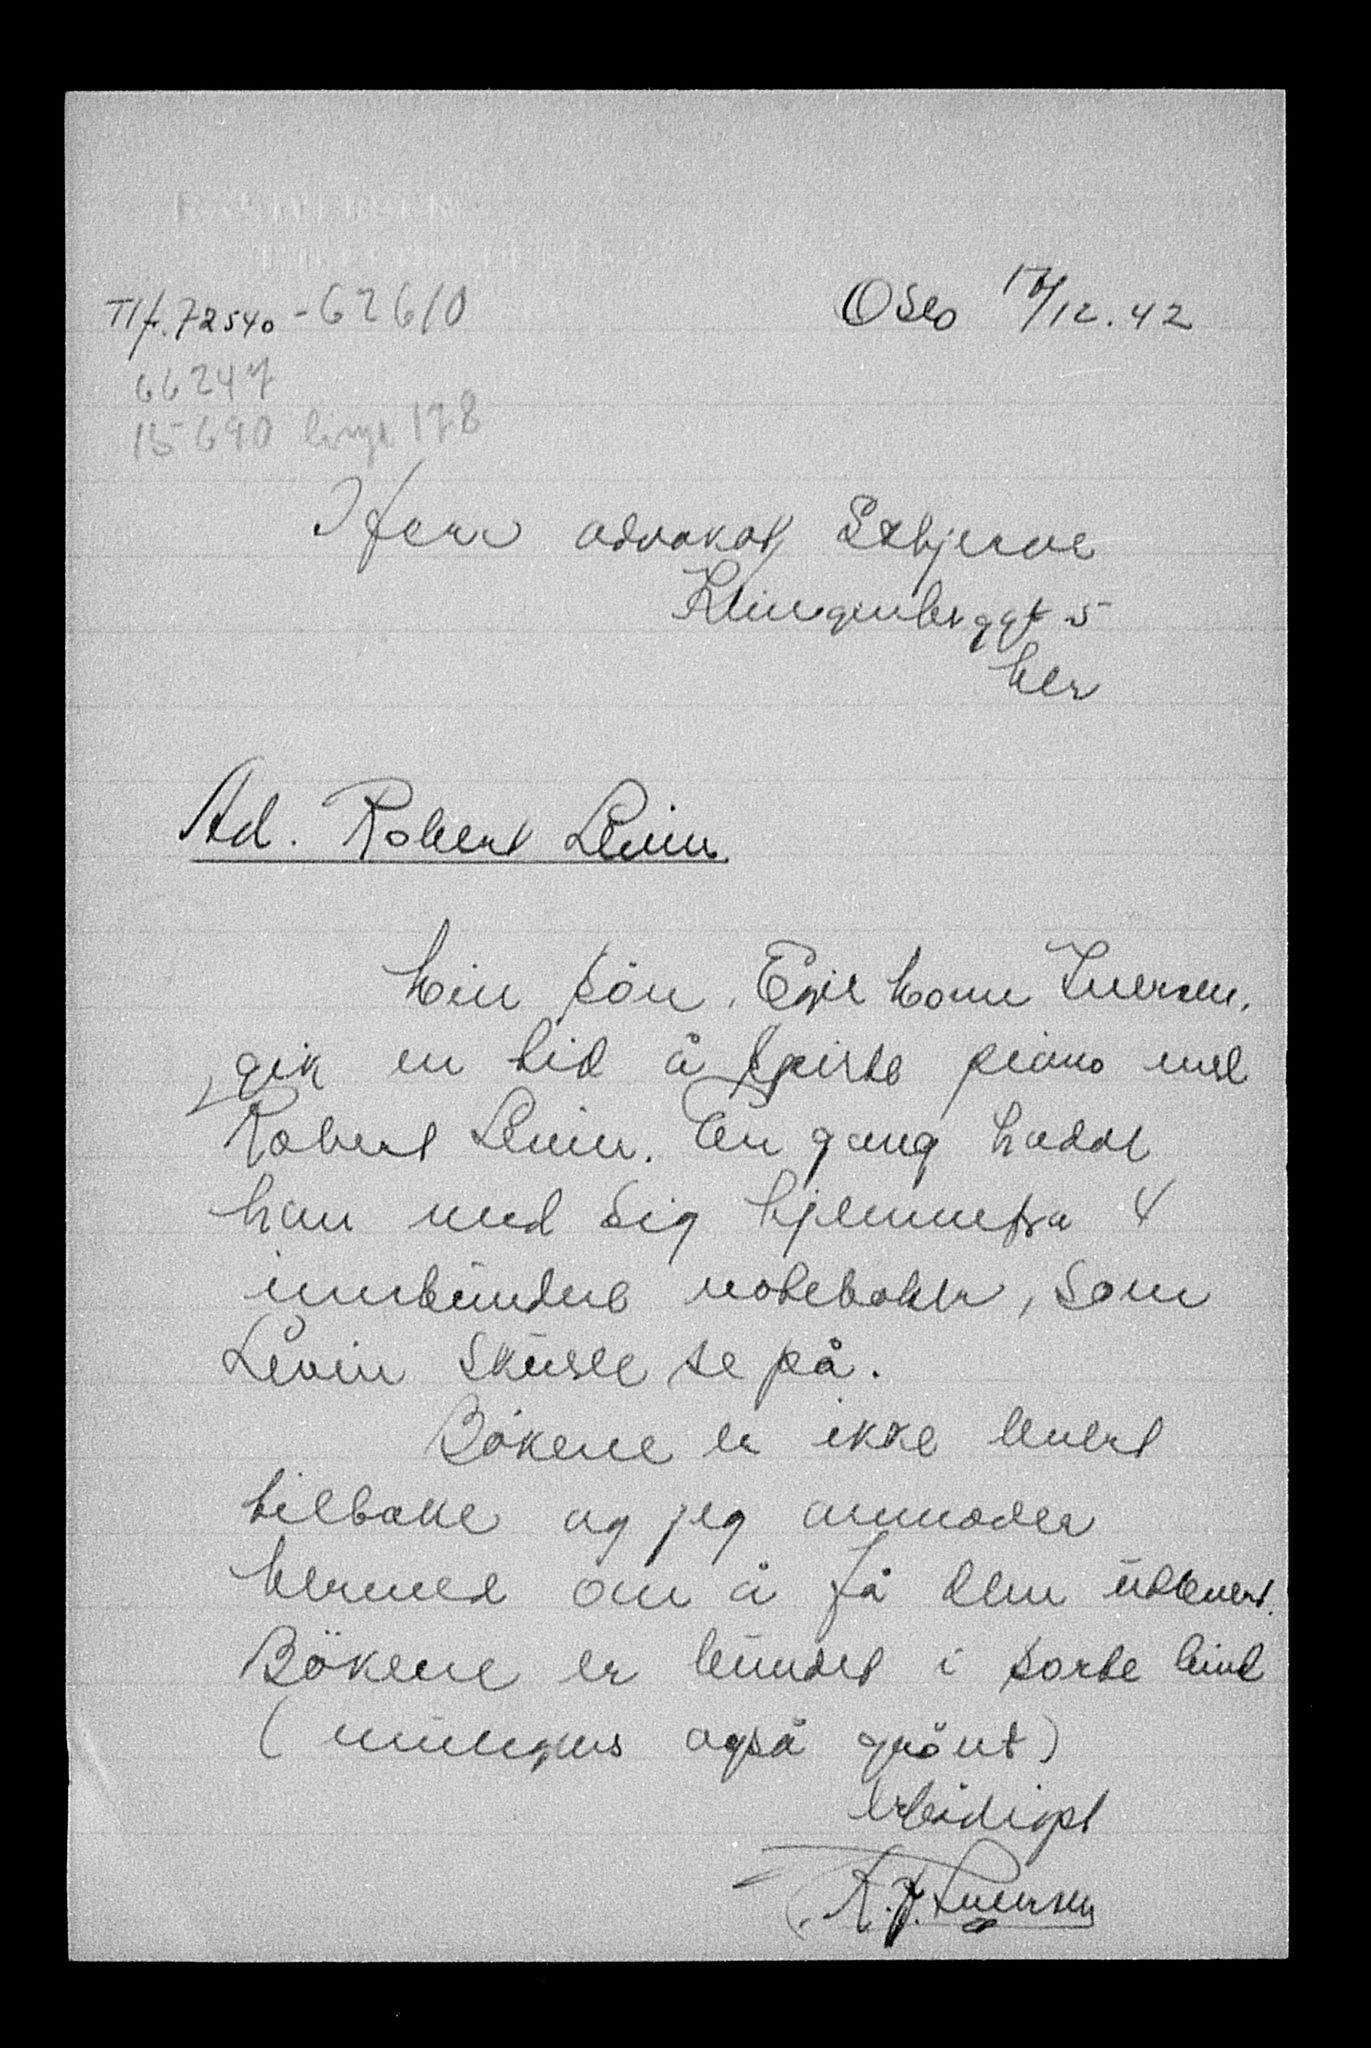 Tlf. 72540 - 62610
Oslo 17/12. 42
66247
15690 linje 178
Herr advokat Sæbjerve
Klingenberggt 5
her
Ad. Robert Levin.
Min sön, Egil Monn Iversen,
gik en tid å spilte piano med
Robert Levin. En gang hadde
han med sig hjemmefra 4
innbundne notebøker, som
Levin skulle se på.
Bökene er ikke levert
tilbake og jeg anmoder
hermed om å få dem utlevert.
Bökene er bundet i sorte bind
(muligens også grönt)
Erbödigst
Iversen